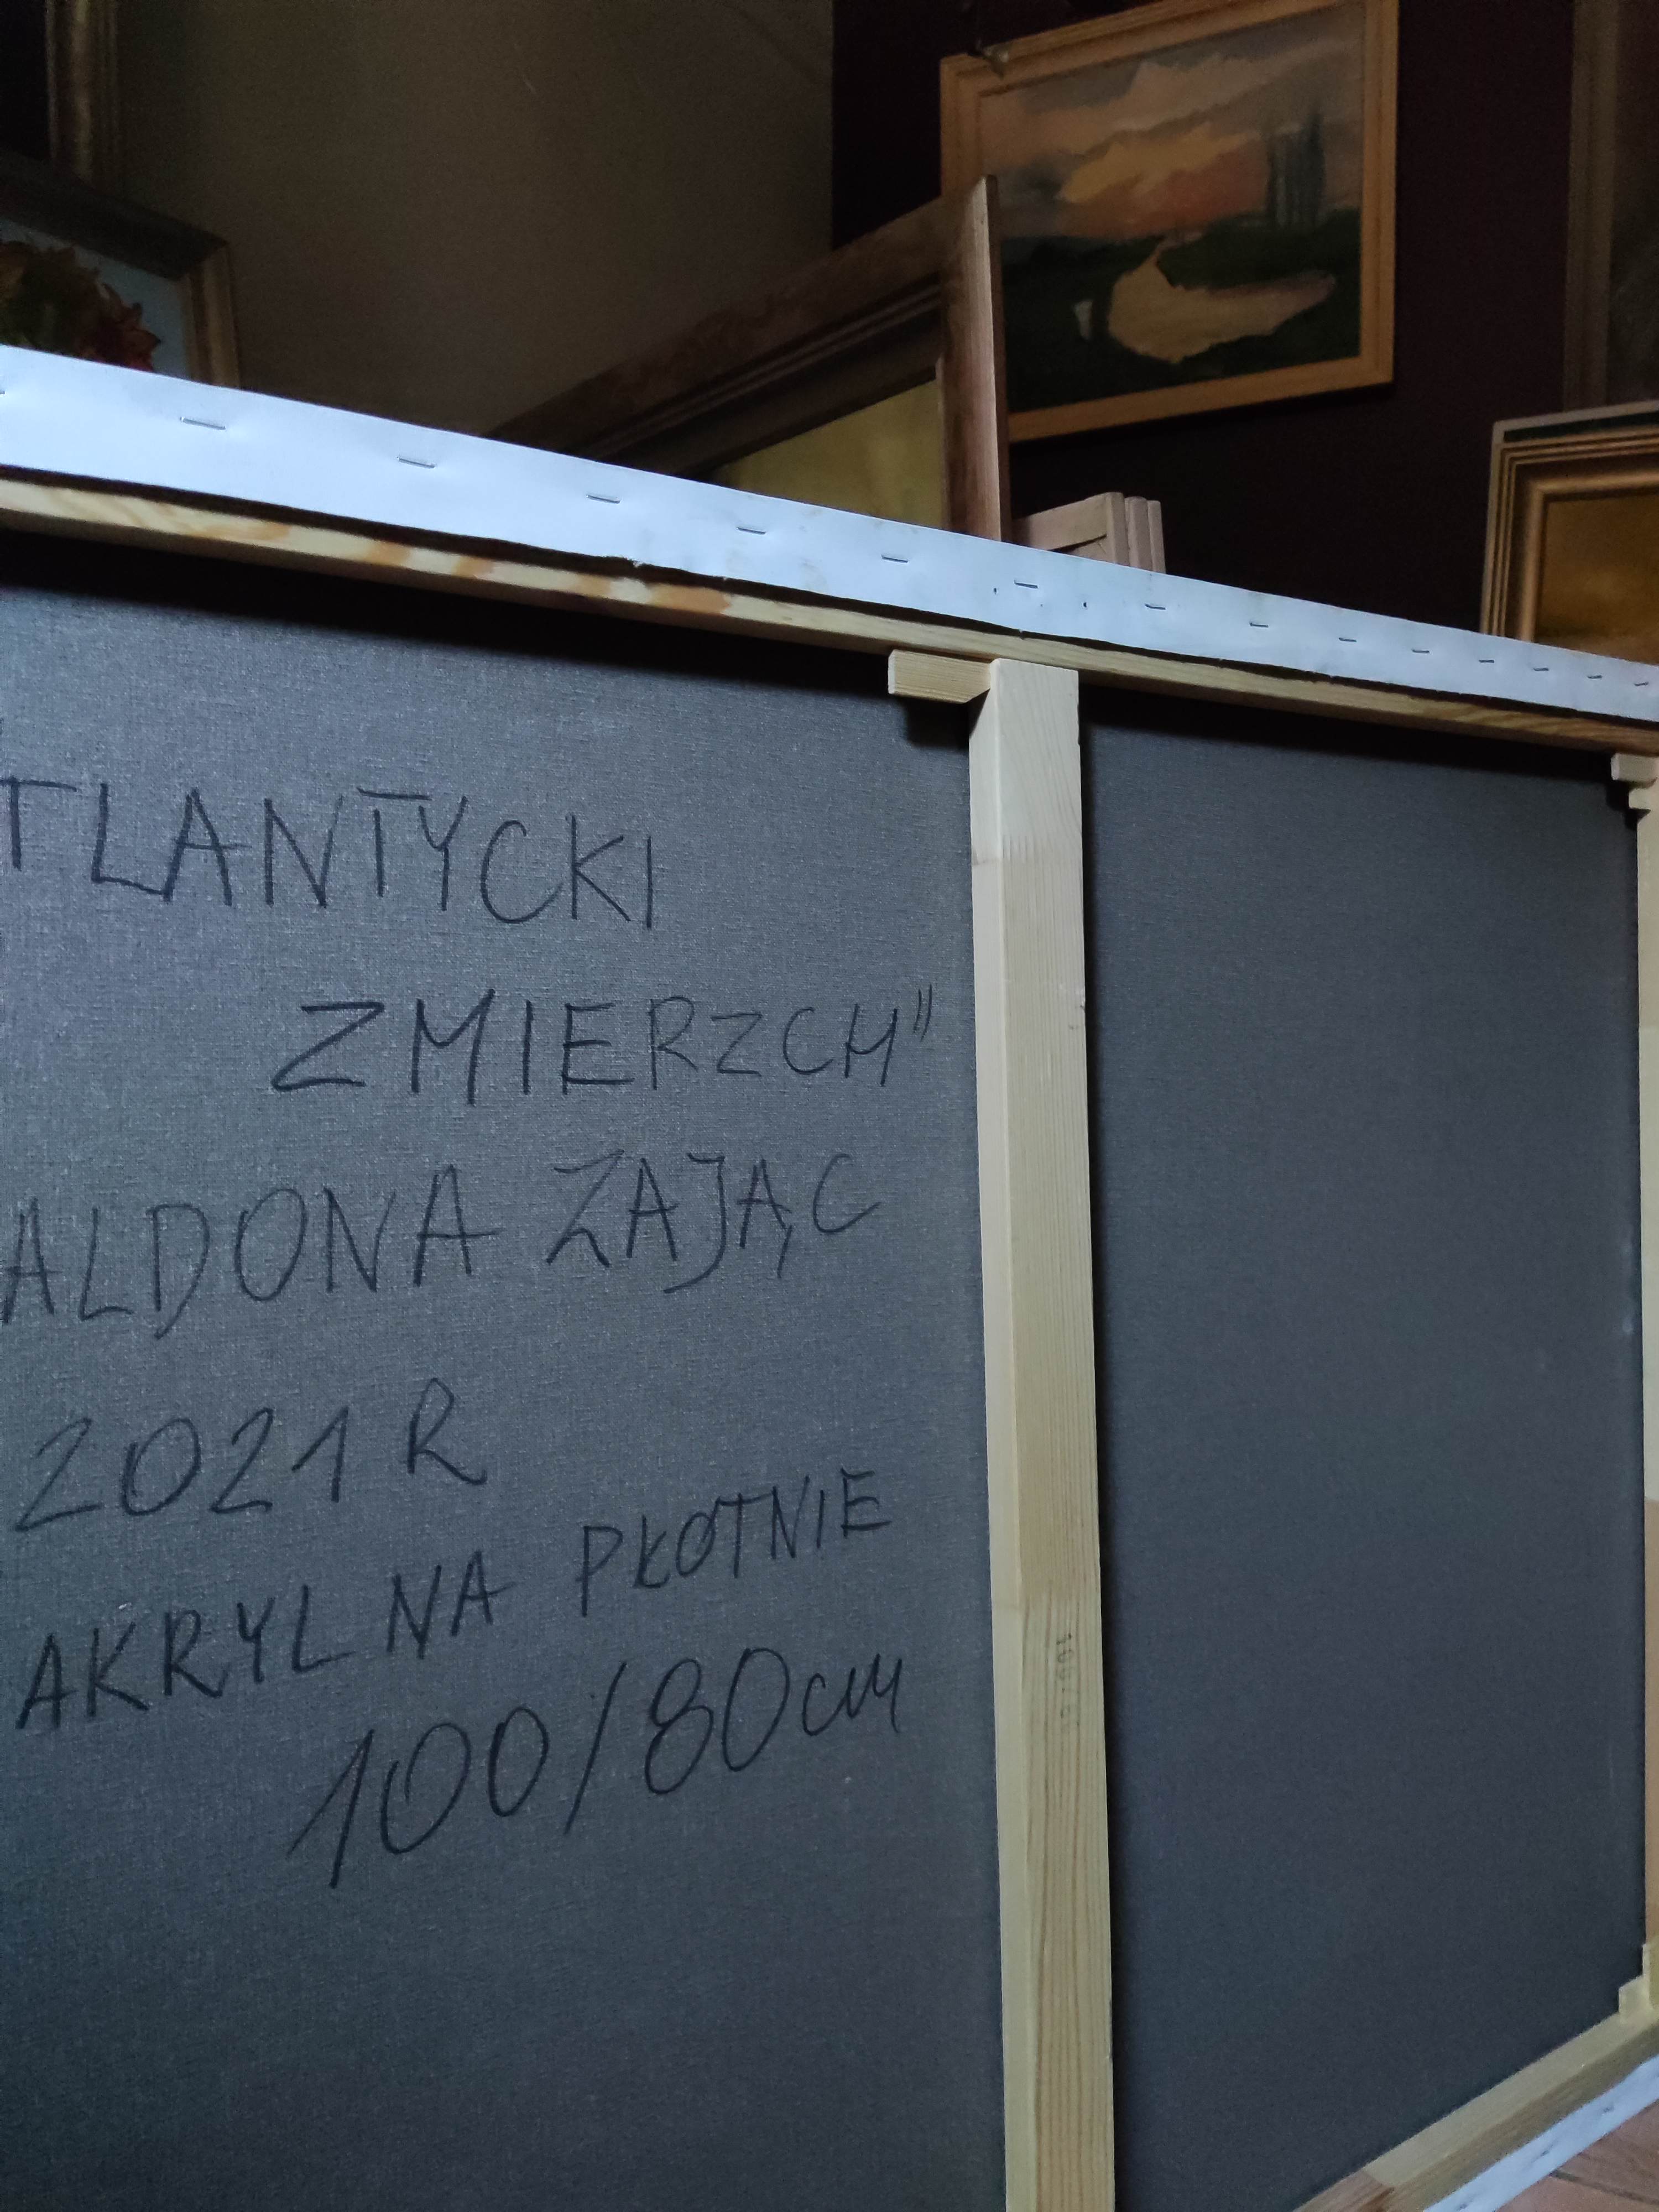 TLANTYCKI
ZMIERZCH"
ALDONA ZAJĄC
2021 R
AKRYL NA PŁÓTNIE
100/80cm